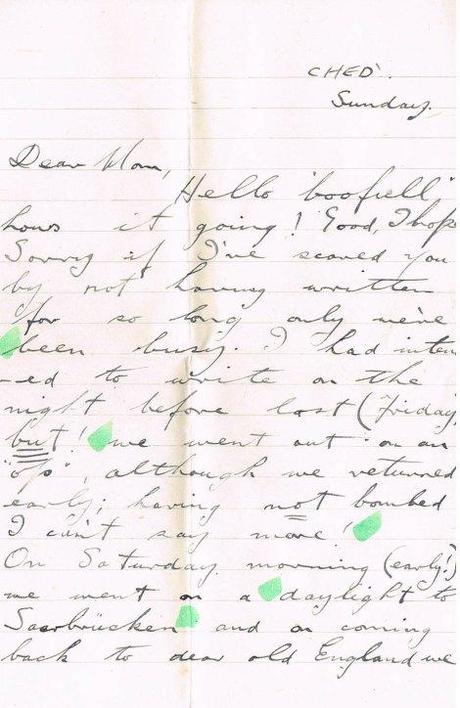 CHED'.
Sunday.
Dear Mom,
Hello "boofull"
hows it going! Good, I hope
Sorry if I've scared you
by not having written
for so long only we've
been busy. I had inten
-ed to write on the
night before last (Friday)
but! we went out on an
"op", although we returned
early; having not bombed
I can't say more!
On Saturday morning (early!)
we went on a daylight to
Saarbrücken and on coming
back to dear old England we